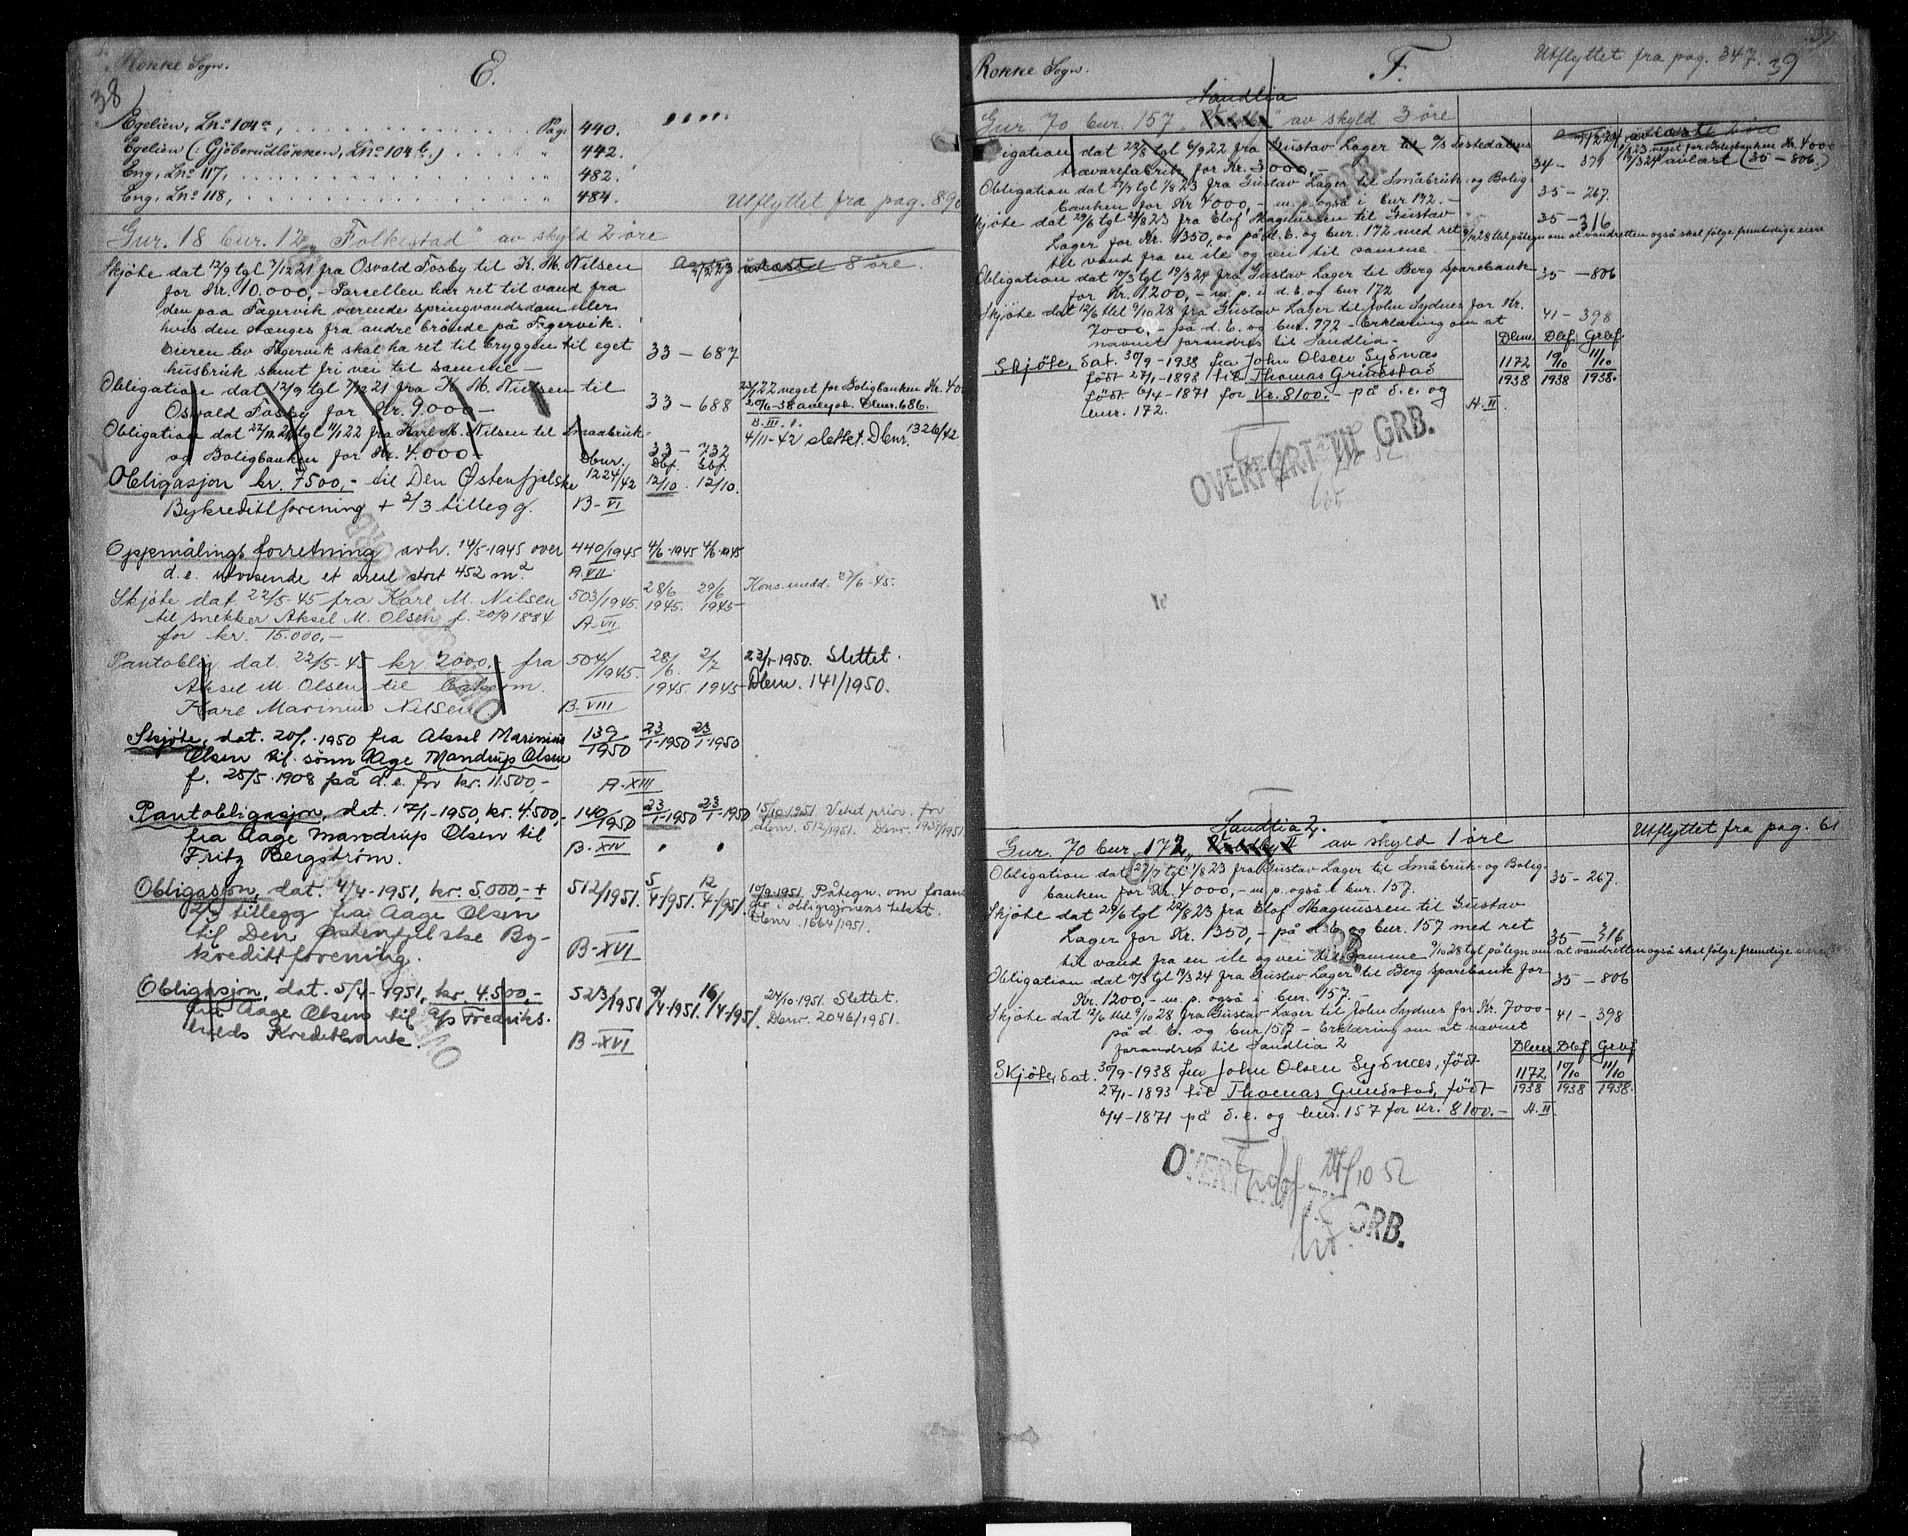 38
Rokke Sogn.
E.
Egelien, Lno 104a, Pag. 440.
Egelien (: Gjöberudlökken, Lno 104b.) " 442.
Eng, Lno 117, " 482.
Eng, Lno 118, " 484.
Utflyttet fra pag. 890
Gnr. 18 bnr. 12 "Folkestad" av skyld 2 öre
Skjöte dat 12/9 tgl 7/12 21 fra Osvald Fosby til K. M. Nilsen
for Kr. 10,000,- Parcellen har ret til vand fra
den paa Fagervik værende springvandsdam eller
hvis den stænges fra andre brönde på Fagervik.
Eieren av Fagervik skal ha ret til bryggen til eget
husbruk samt fri vei til samme - 33 - 687
Obligation dat 12/9 tgl 7/12 21 fra K. M. Nilsen til
Osvald Fosby for Kr. 9.000 - 33 - 688
23/1 22 veget for Boligbanken Kr. 400
20/6-38 avlyst. Dbnr. 686.
B. III. 1.
Obligation dat 22/12 21 tgl 11/1 22 fra Karl M. Nilsen til Smaabruk-
og Boligbanken for Kr. 4.000 - 33 - 732
4/11-42 slettet. Dbnr. 1326/42
Dbnr. Dbf. Gbf.
Obligasjon kr. 7500,- til Den Østenfjelske 1224/42 12/10 12/10.
Bykredittforening + 2/3 tillegg. B-VI
Oppmålingsforretning avh. 14/5-1945 over 440/1945 4/6-1945 4/6-1945
d.e. utvisende et areal stort 452 m.2 A.VII
Skjöte dat. 22/5-45 fra Karl M. Nilsen 503/1945. 28/6 1945. 29/6 1945- Kons.medd. 27/6-45.
til snekker Aksel M. Olsen f. 20/9 1884 A-VII
for kr. 15.000,-
Pantoblig dat. 22/5-45 kr. 2000,- fra 504/1945. 28/6 1945 2/7 1945- 23/1-1950. Slettet.
Aksel M Olsen til Dbnr. 141/1950.
Karl Marinius Nilsen B-VIII
Skjöte, dat. 20/1-1950 fra Aksel Marinius 139/1950 23/1-1950 23/1-1950
Olsen til sønn Aage Mandrup Olsen
f. 25/5-1908 på d.e. for kr. 11.500,- A-XIII
Pantobligasjon, dat. 17/1-1950, kr. 4.500,- 140/1950 23/1-1950 23/1-1950 15/10-1951. Veket prior. for
fra Aage Mandrup Olsen til dbnr. 512/1951. Dbnr. 1959/1951
Fritz Bergström. B-XIV
Obligasjon, dat. 4/4-1951, kr. 5000,- + 512/1951. 5/4-1951. 12/4-1951. 10/9-1951. Påtegn. om foran-
2/3 tillegg fra Aage Olsen i obligasjonens tekst.
til Den Østenfjelske By- Dbnr. 1664/1951.
kredittforening. B-XVI
Obligasjon, dat. 5/4-1951, kr. 4.500,- 523/1951 9/4-1951. 16/4-1951. 24/10-1951. Slettet.
fra Aage Olsen til A/S Fredriks- Dbnr. 2046/1951.
halds Kreditbank. B-XVI
Rokke Sogn.
F.
Utflyttet fra pag. 347.
39
Sandlia
Gnr 70 bnr. 157 av skyld 3 öre
Obligation dat 22/8 tgl 6/9 22 fra Gustav Lager til A/S Tistedalens
trævarefabrik for Kr. 3000,- 34 - 379
19/3 24 avlæst (35 - 806.)
Obligation dat 27/7 tgl 1/8 23 fra Gustav Lager til Småbruk- og Bolig-
banken for Kr 4000,- m. p. også i bnr 172. - 35 - 267.
Skjöte dat 29/6 tgl 22/8 23 fra Elof Magnussen til Gustav 35 - 316
Lager for Kr. 1350,00 på d. E. og bnr. 172 med ret 9/10 28 tgl påtegn om at vandretten også skal følge fremtidige eiere
til vand fra en ile og vei til samme
Obligation dat 10/3 tgl 19/3 24 fra Gustav Lager til Berg Sparebank 35 - 806
for Kr. 1200,- m. p. i d. E. og bnr 172
Skjöte dat 12/6 tgl 9/10 28 fra Gustav Lager til John Sydnes for Kr. 41 - 398
7000,- på d. E. og bnr. 172 - Erklæring om at
navnet forandres til Sandlia -
Dbnr. Dbf. Grbf
Skjöte, dat. 30/9-1938 fra John Olsen Sydnæs 1172/1938 10/10 1938 11/10 1938.
født 27/1-1893 til Thomas Grimstad
født 6/4-1871 for Kr. 8100.- på d.e. og A.II
bnr. 172.
OVERFØRT TIL GRB.
Sandlia 2.
Utflyttet fra pag. 61
Gnr. 70 bnr. 172 av skyld 1 öre
Obligation dat 27/7 tgl 1/8 23 fra Gustav Lager til Småbruk- og Bolig-
banken for Kr. 4000,- m. p. også i bnr. 157. 35 - 267.
Skjöte dat 29/6 tgl 22/8 23 fra Elof Magnussen til Gustav
Lager for Kr. 1350,- på d. E. og bnr. 157 med ret 35 - 316
til vand fra en ile og vei til samme 9/10 28 tgl påtegn om at vandretten også skal følge fremtidige eiere
Obligation dat 10/3 tgl 19/3 24 fra Gustav Lager til Berg Sparebank for 35 - 806
Kr. 1200,- m. p. også i bnr. 157. -
Skjöte dat 12/6 tgl 9/10 28 fra Gustav Lager til John Sydnes for Kr. 7000 - 41 - 398
på d. E. og bnr 157 - Erklæring om at navnet
forandres til Sandlia 2
Dbnr Dbf Grbf
Skjöte, dat. 30/9-1938 fra John Olsen Sydnæs, født 1172/1938 10/10 1938 11/10 1938.
27/1-1893 til Thomas Grimstad, født
6/4-1871 på d.e. og bnr. 157 for Kr. 8100.- A.II
OVERFØRT TIL GRB.
24/10 52